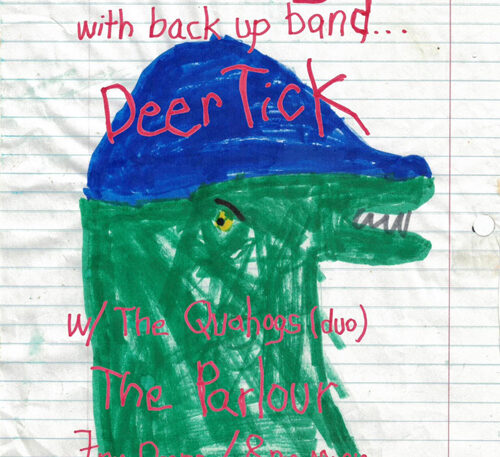 with back up band...
Deer Tick
w/ The Quahogs (duo)
The Parlour
7pm Doors / 8pm